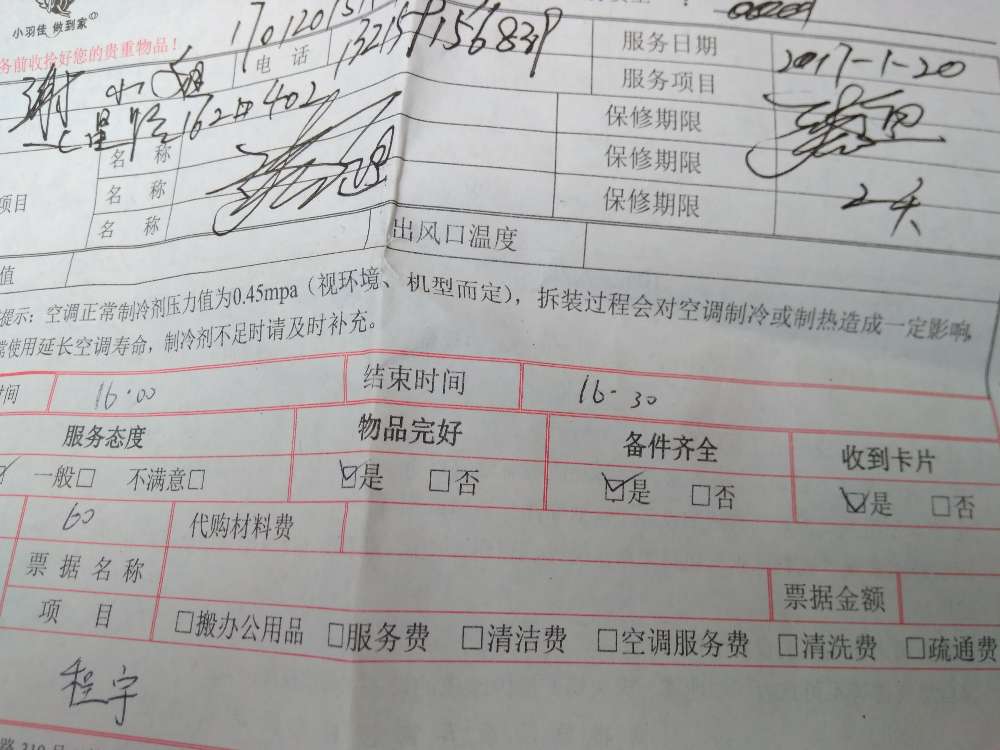 小羽佳 做到家
务前收拾好您的贵重物品!
电 话
服务日期 2017-1-20
服务项目
名 称 保修期限
名 称 保修期限
项目 名 称 保修期限 2天
值 出风口温度
提示：空调正常制冷剂压力值为0.45mpa（视环境、机型而定），拆装过程会对空调制冷或制热造成一定影响,
使用延长空调寿命，制冷剂不足时请及时补充。
时间 16:00 结束时间 16-30
服务态度 物品完好 备件齐全 收到卡片
一般□ 不满意□ ☑是 □否 ☑是 □否 ☑是 □否
60 代购材料费
票据名称 票据金额
项 目 □搬办公用品 □服务费 □清洁费 □空调服务费 □清洗费 □疏通费
程宇
路310号